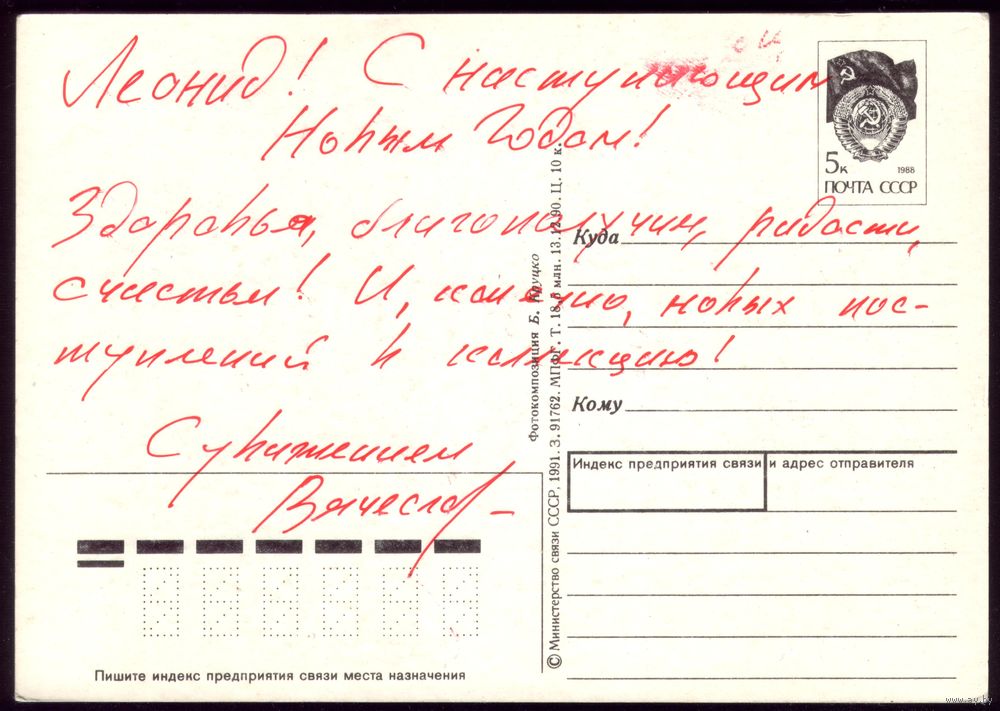 Леонид! С наступающим
Новым Годом!
Здоровья, благополучия, радости,
счастья! И, конечно, новых пос-
туплений в коллекцию!
С уважением
Вячеслав
5к
1988
ПОЧТА СССР
Куда
Кому
Индекс предприятия связи и адрес отправителя
Фотокомпозиция Б. Круцко
© Министерство связи СССР, 1991. З. 91762. МПФГ. Т. 18,0 млн. 13.12.90. Ц. 10 к.
Пишите индекс предприятия связи места назначения
www.ay.by